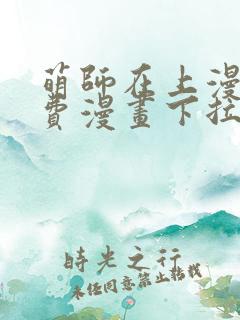 萌師在上漫
費漫畫下拉
時光之行
未經同意禁止轉載